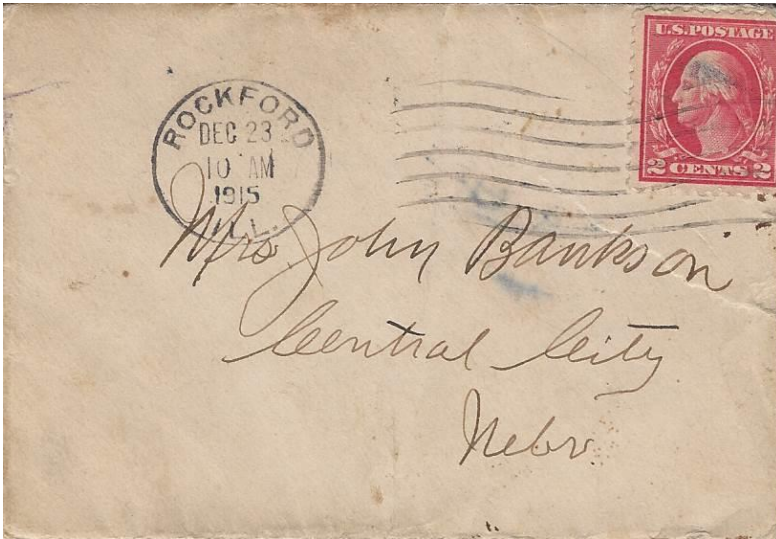 U.S. POSTAGE
2 CENTS 2
ROCKFORD
DEC 23
10 AM
1915
ILL.
Mrs John Bankson
Central City
Nebr.